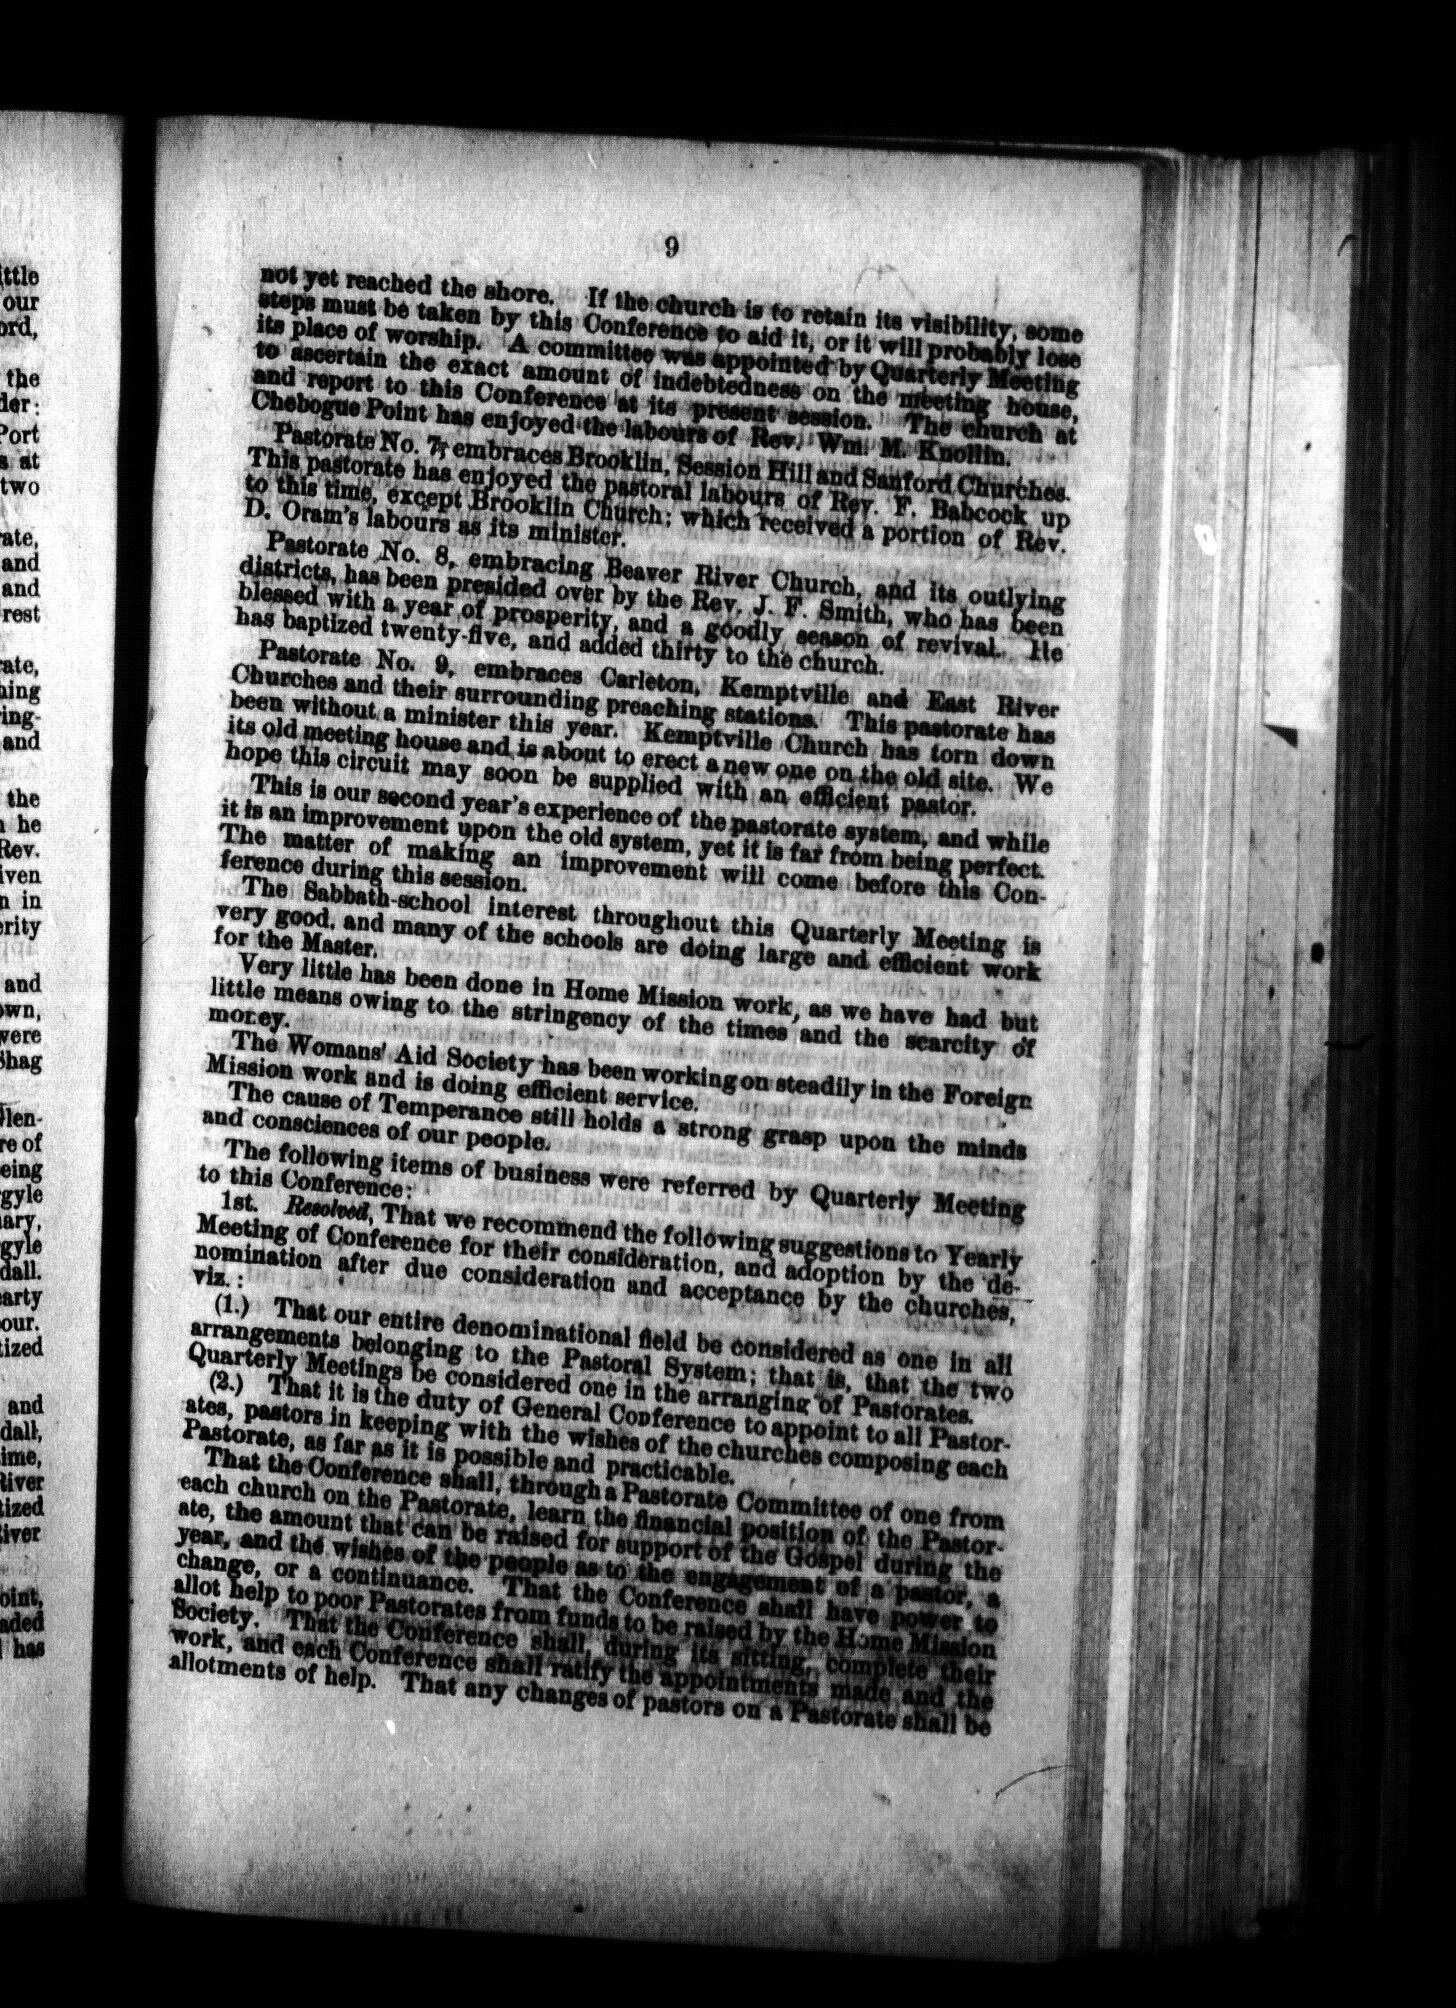 9
not yet reached the shore. If the church is to retain its visibility, some
steps must be taken by this Conference to aid it, or it will probably lose
its place of worship. A committee was appointed by Quarterly Meeting
to ascertain the exact amount of indebtedness on the meeting house,
and report to this Conference at its present session. The church at
Chebogue Point has enjoyed the labours of Rev. Wm. M. Knollin.
Pastorate No. 7, embraces Brooklin, Session Hill and Sanford Churches.
This pastorate has enjoyed the pastoral labours of Rev. F. Babcock up
to this time, except Brooklin Church; which received a portion of Rev.
D. Oram's labours as its minister.
Pastorate No. 8, embracing Beaver River Church, and its outlying
districts, has been presided over by the Rev. J. F. Smith, who has been
blessed with a year of prosperity, and a goodly season of revival. He
has baptized twenty-five, and added thirty to the church.
Pastorate No. 9, embraces Carleton, Kemptville and East River
Churches and their surrounding preaching stations. This pastorate has
been without a minister this year. Kemptville Church has torn down
its old meeting house and is about to erect a new one on the old site. We
hope this circuit may soon be supplied with an efficient pastor.
This is our second year's experience of the pastorate system, and while
it is an improvement upon the old system, yet it is far from being perfect.
The matter of making an improvement will come before this Con-
ference during this session.
The Sabbath-school interest throughout this Quarterly Meeting is
very good, and many of the schools are doing large and efficient work
for the Master.
Very little has been done in Home Mission work, as we have had but
little means owing to the stringency of the times and the scarcity of
money.
The Womans' Aid Society has been working on steadily in the Foreign
Mission work and is doing efficient service.
The cause of Temperance still holds a strong grasp upon the minds
and consciences of our people.
The following items of business were referred by Quarterly Meeting
to this Conference:
1st. Resolved, That we recommend the following suggestions to Yearly
Meeting of Conference for their consideration, and adoption by the de-
nomination after due consideration and acceptance by the churches,
viz.:
(1.) That our entire denominational field be considered as one in all
arrangements belonging to the Pastoral System; that is, that the two
Quarterly Meetings be considered one in the arranging of Pastorates.
(2.) That it is the duty of General Conference to appoint to all Pastor-
ates, pastors in keeping with the wishes of the churches composing each
Pastorate, as far as it is possible and practicable.
That the Conference shall, through a Pastorate Committee of one from
each church on the Pastorate, learn the financial position of the Pastor-
ate, the amount that can be raised for support of the Gospel during the
year, and the wishes of the people as to the engagement of a pastor, a
change, or a continuance. That the Conference shall have power to
allot help to poor Pastorates from funds to be raised by the Home Mission
Society. That the Conference shall, during its sitting, complete their
work, and each Conference shall ratify the appointments made and the
allotments of help. That any changes of pastors on a Pastorate shall be